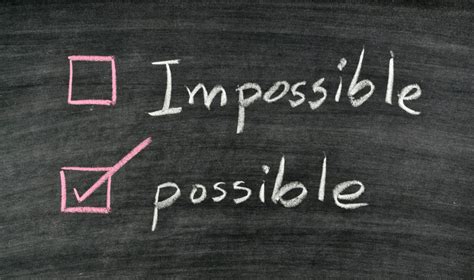 Impossible
possible